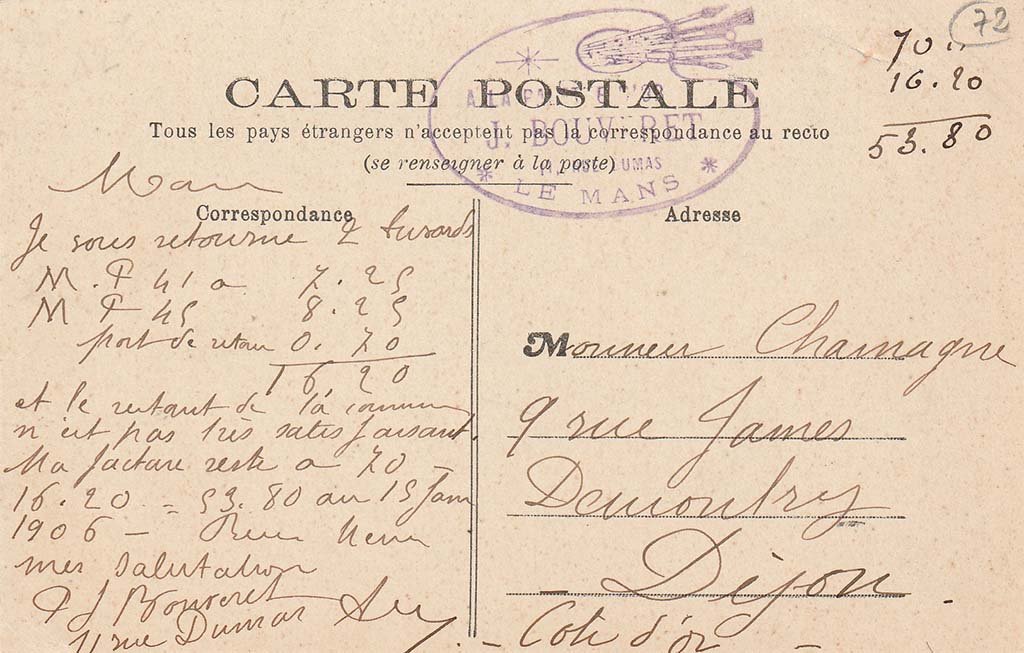 72
70 "
16.20
53.80
CARTE POSTALE
Tous les pays étrangers n'acceptent pas la correspondance au recto
(se renseigner à la poste)
J. BOUVERET
RUE DUMAS
LE MANS
Correspondance
Je vous retourne 2
M. F 41 a 7.25
M F 45 8.25
port de retour 0.70
16.20
et le restant de la
n'est pas très satisfaisant.
Ma facture reste a 70 -
16.20 = 53.80 au 15 Janv
1906 -
mes salutation
J Bouveret
11 rue Dumas
Adresse
Monsieur Chamagne
9 rue James
Demontry
- Dijon
- Cote d'or -